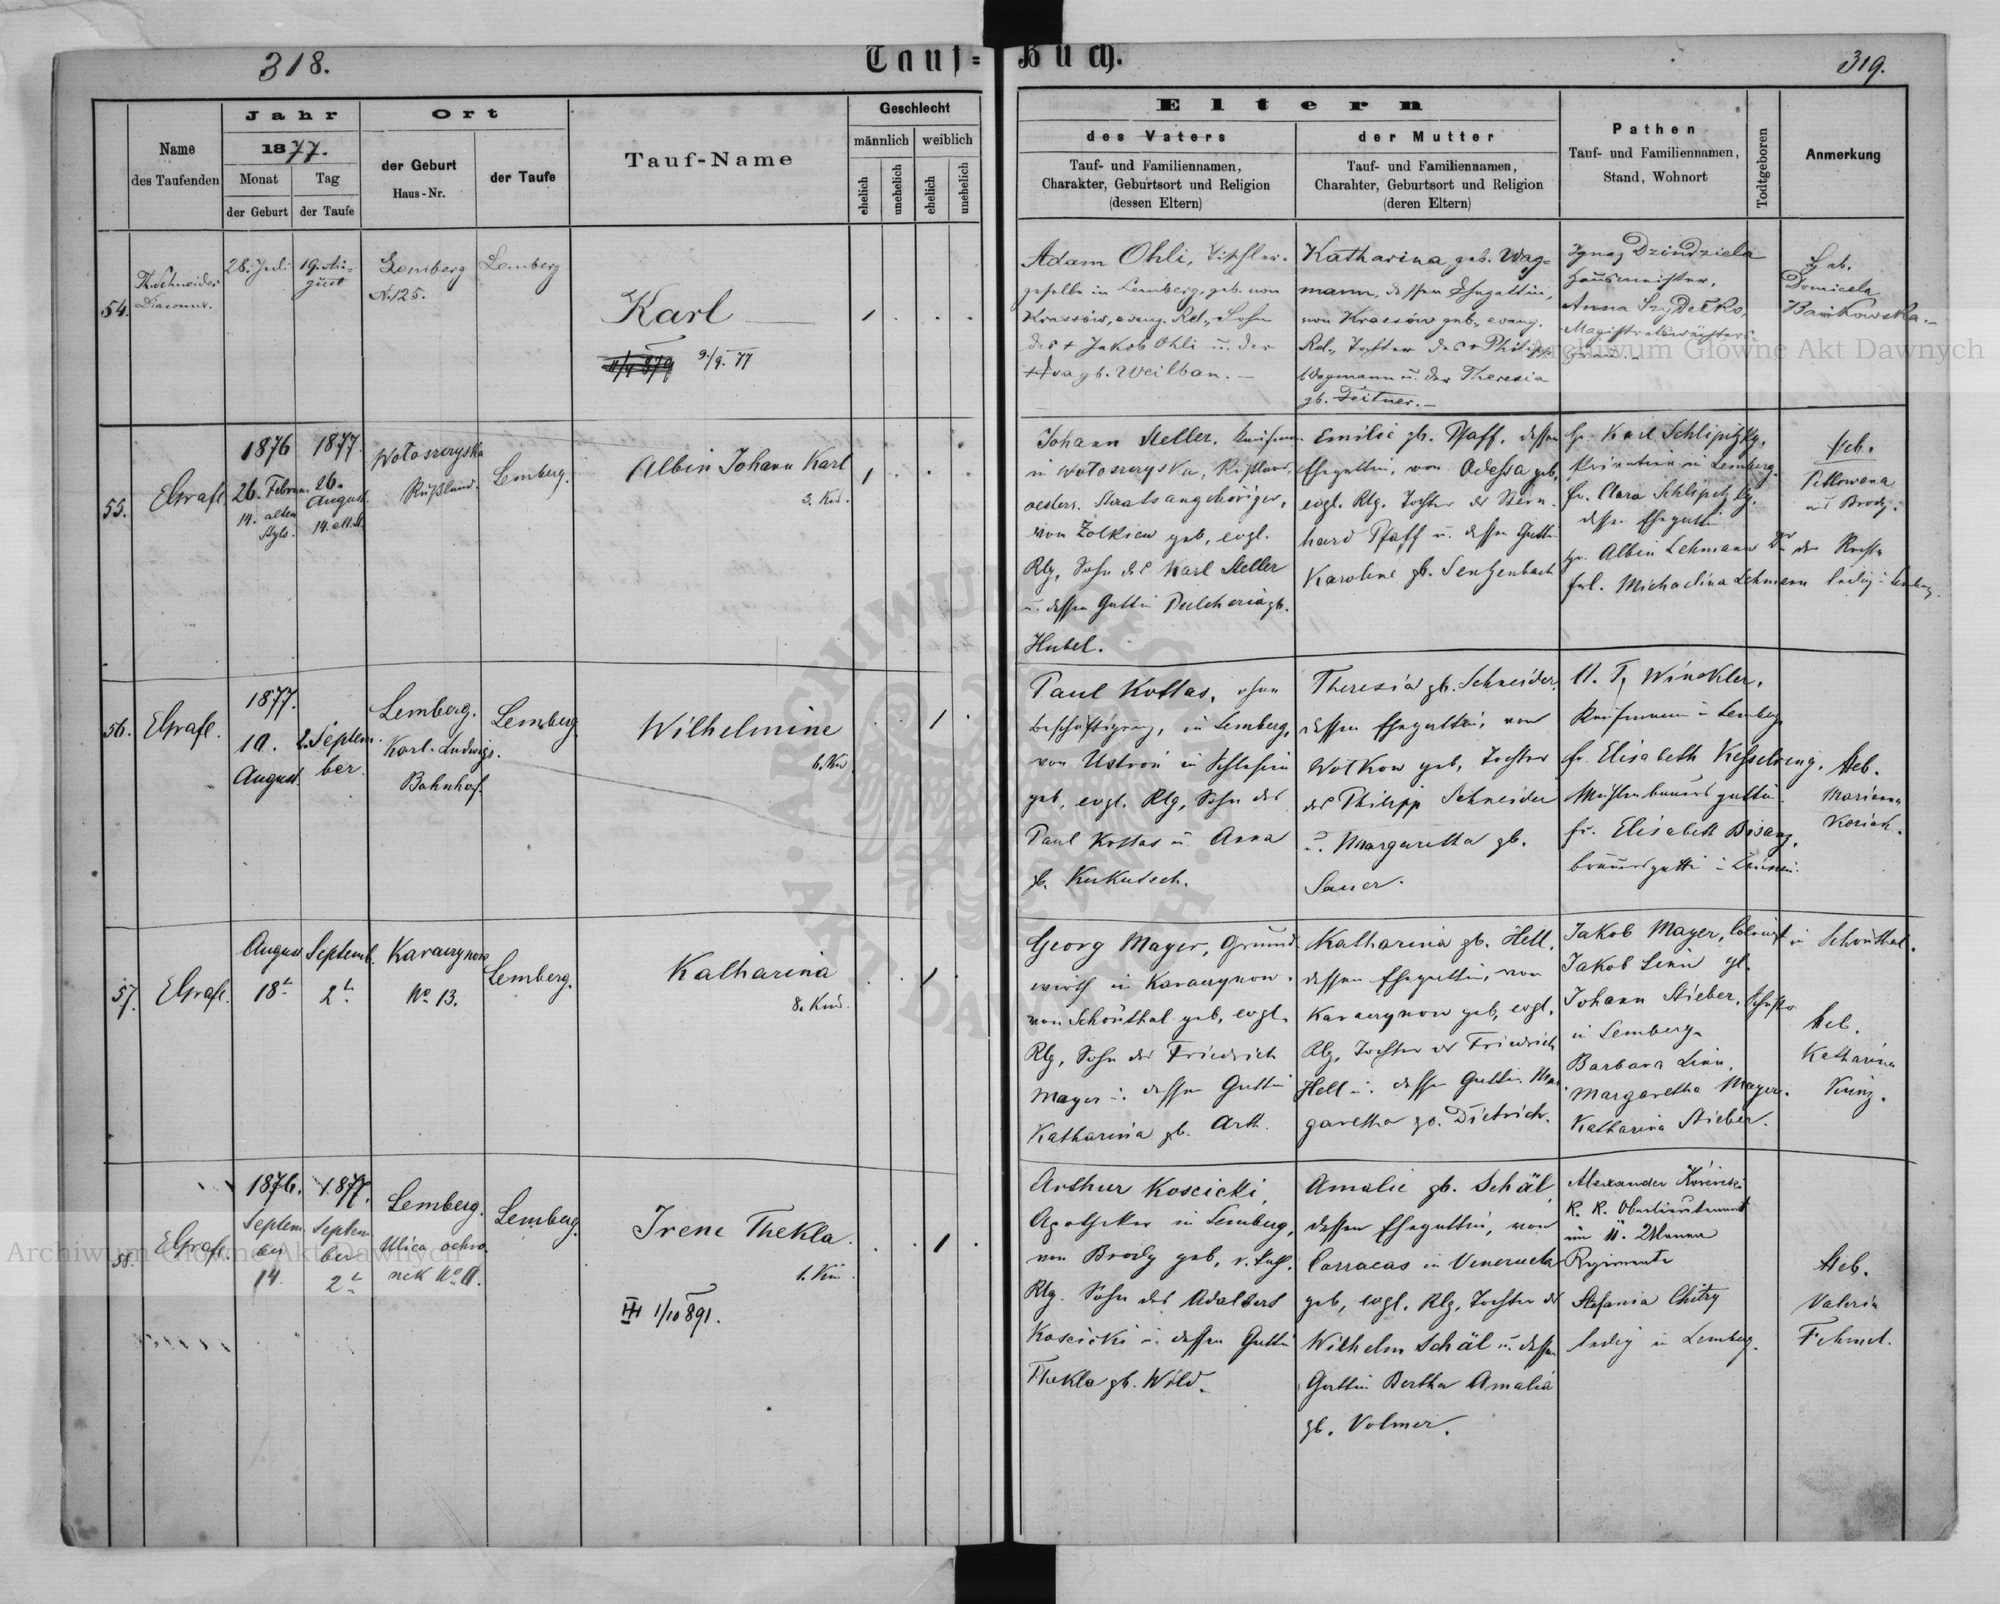 318.
Tauf-
Buch.
319.
Name
des Taufenden
Jahr
1877.
Monat
Tag
der Geburt
der Taufe
Ort
der Geburt
Haus-Nr.
der Taufe
Tauf-Name
Geschlecht
männlich
weiblich
ehelich
unehelich
ehelich
unehelich
Eltern
des Vaters
Tauf- und Familiennamen,
Charakter, Geburtsort und Religion
(dessen Eltern)
der Mutter
Tauf- und Familiennamen,
Charakter, Geburtsort und Religion
(deren Eltern)
Pathen
Tauf- und Familiennamen,
Stand, Wohnort
Todtgeboren
Anmerkung
54.
Th. Schneider
Diaconus.
28. Juli
19. Au-
gust
Lemberg
N. 125.
Lemberg
Karl
9./9. 77
Adam Ohli, Tischler-
geselle in Lemberg, geb. von
Krassów, evang. Rel., Sohn
des + Jakob Ohli u. der
Eva gb. Weilban.
Katharina geb. Wag-
mann, dessen Ehegattin,
von Krassów geb., evang.
Rel., Tochter des + Philipp
Wagmann u. der Theresia
gb. Feitner.
Ignaz Dzindziela
Hausmeister,
Anna Szydełko,
Magistratswächters-
Domicela
55.
EGrafl.
1876
26. Februar
14. alten
Styls.
1877.
26.
August
14. alt. St.
Wołoszczyska
Rußland.
Lemberg.
Albin Johann Karl
3. Kind.
Johann Steller, Kaufmann
in Wołoszczyska, Rußland,
oesterr. Staatsangehöriger,
von Zolkiew geb, evgl.
Rlg, Sohn des Karl Steller
u. dessen Gattin Pulcheria gb.
Hubel.
Emilie gb. Pfaff, dessen
Ehegattin, von Odessa geb,
evgl. Rlg, Tochter des Bern-
hard Pfaff u. dessen Gattin
Karoline gb. Senzenbach
Hr. Karl Schlipitzky,
in Lemberg.
Fr. Clara Schlipitzky,
dessen Ehegattin
Hr. Albin Lehmann Dr der Rechte
Frl. Michaelina Lehmann ledig in Lemberg.
Heb.
aus Brody.
56.
EGrafl.
1877.
10.
August
2. Septem-
ber.
Lemberg.
Karl-Ludwigs-
Bahnhof.
Lemberg
Wilhelmine
6. Kind
Paul Kottas, ohne
Beschäftigung, in Lemberg,
von Ustroń in Schlesien
geb, evgl. Rlg, Sohn des
Paul Kottas u. Anna
gb. Kukutsch.
Theresia gb. Schneider,
dessen Ehegattin, von
Wolkow geb, Tochter
des Philipp Schneider
u. Margaretha gb.
Sauer.
Winckler,
Kaufmann in Lemberg
Fr. Elisabeth Kesselring,
Mühlenbauersgattin.
Fr. Elisabeth Bisanz,
Heb.
Marianna
57.
EGrafl.
August
18t
Septemb.
2t
Karaczynow
No 13.
Lemberg.
Katharina
8. Kind.
Georg Mayer, Grund-
wirth in Karaczynow,
von Schönthal geb, evgl.
Rlg, Sohn des Friedrich
Mayer u. dessen Gattin
Katharina gb. Arth.
Katharina gb. Hell,
dessen Ehegattin, von
Karaczynow geb, evgl.
Rlg, Tochter des Friedrich
Hell u. dessen Gattin Mar-
garetha gb. Dietrich.
Jakob Mayer, Colonist in Schönthal.
Jakob Linn gl.
Johann Stieber, Schuster
in Lemberg
Barbara Linn,
Margaretha Mayer.
Katharina Stieber.
Heb.
Katharina
Kunz.
58.
EGrafl.
1876.
Septem-
ber
14.
1877.
Septem-
ber
2t
Lemberg.
Ulica ochro-
nek No 11.
Lemberg.
Irene Thekla.
1. Kind.
III 1/10 891.
Arthur Koscicki,
Apotheker in Lemberg,
von Brody geb, r. kath.
Rlg. Sohn des Adalbert
Koscicki u. dessen Gattin
Thekla gb. Wild.
Amalie gb. Schäl,
dessen Ehegattin, von
Carracas in Venezuela
geb, evgl. Rlg, Tochter des
Wilhelm Schäl u. dessen
Gattin Bertha Amalia
gb. Volmer.
Alexander
K. K. Oberlieutenant
im 11. Uhlanen
Regimente
Stefania Chitry
ledig in Lemberg.
Heb.
Valeria
Archiwum Główne Akt Dawnych
Archiwum Główne Akt Dawnych
ARCHIWUM GŁÓWNE AKT DAWNYCH